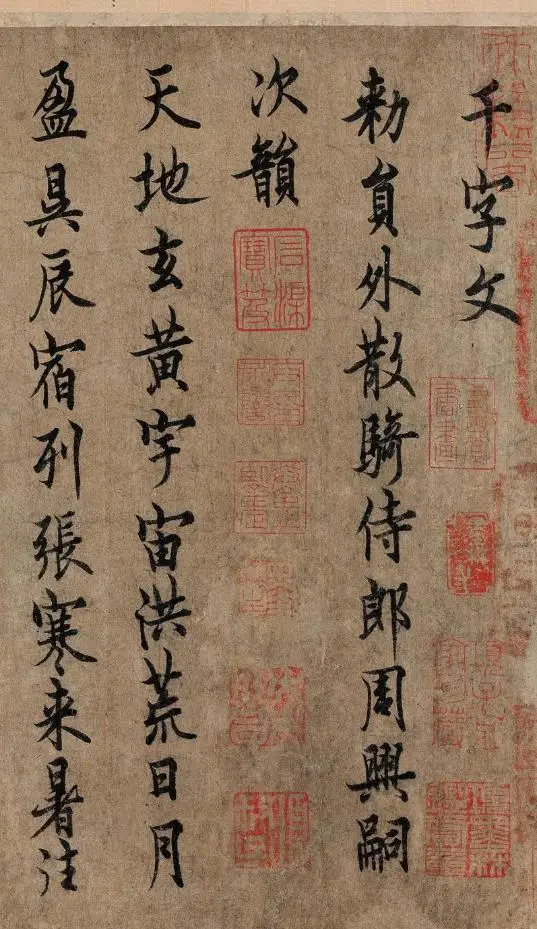 千字文
勅員外散騎侍郎周興嗣
次韻
天地玄黄宇宙洪荒日月
盈昃辰宿列張寒来暑往